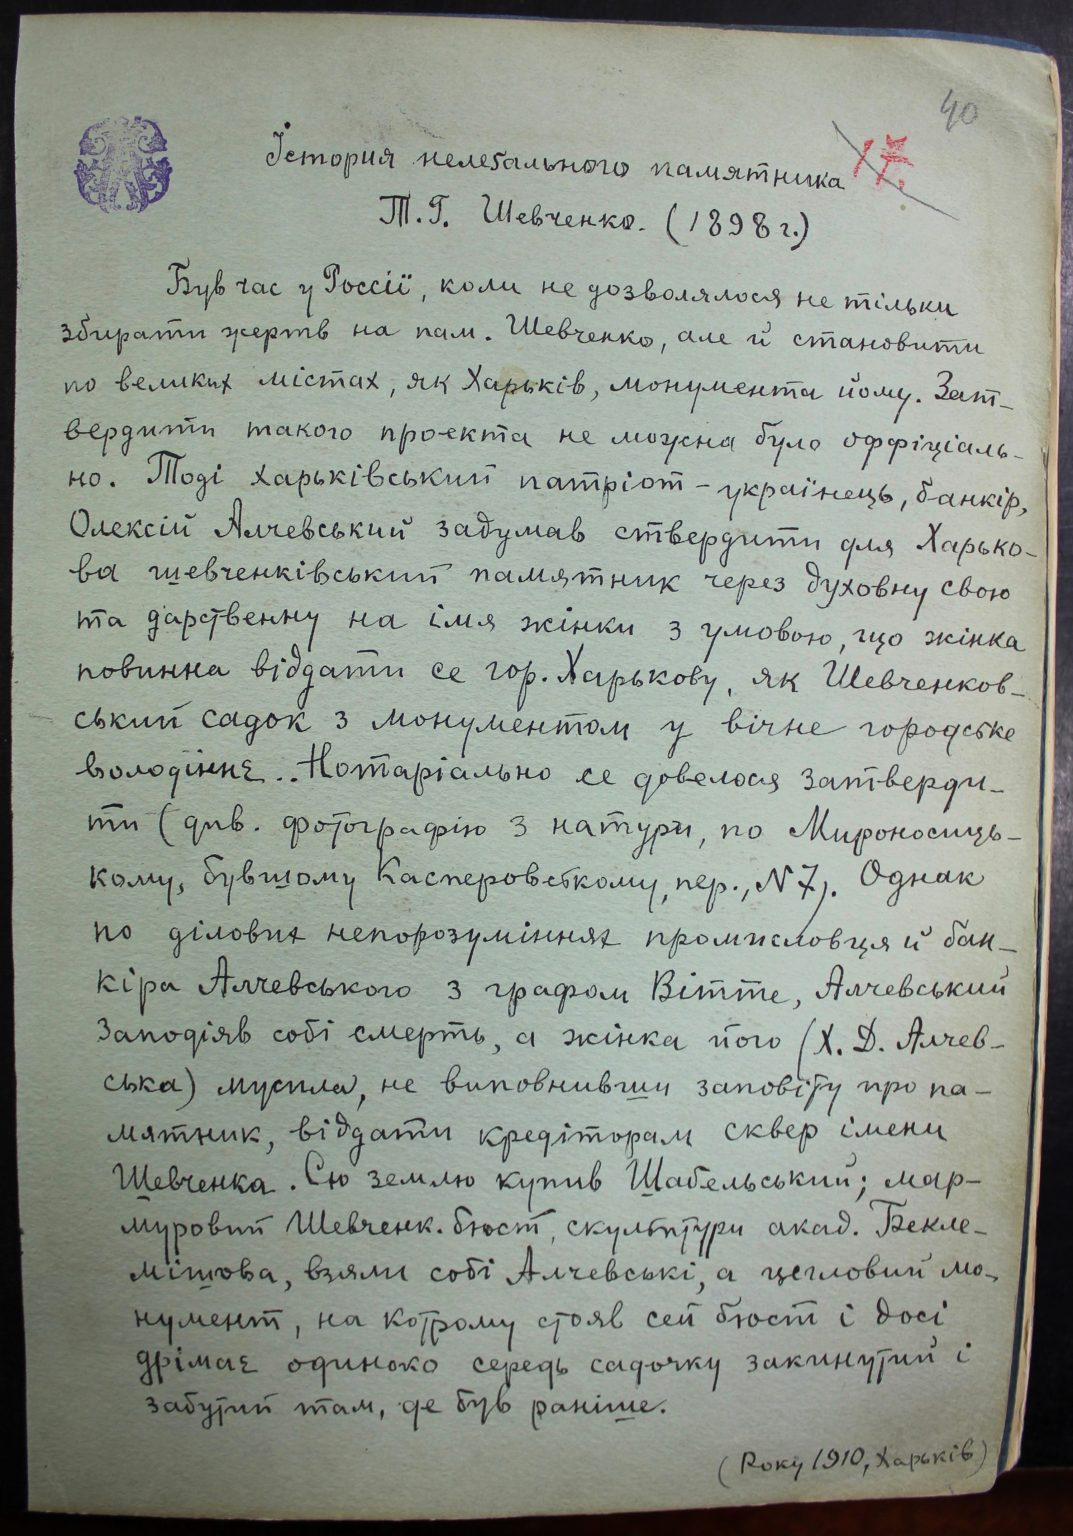 40
Істория нелегального памятника
17.
Т. Г. Шевченко. (1898 г.)
Був час у Россії, коли не дозволялося не тільки
збирати жертв на пам. Шевченко, але й становити
по великих містах, як Харьків, монумента йому. Зат-
вердити такого проекта не можна було оффіціаль-
но. Тоді харьківський патріот-українець, банкір,
Олексій Алчевський задумав ствердити для Харько-
ва шевченківський памятник через духовну свою
та дарственну на імя жінки з умовою, що жінка
повинна віддати се гор. Харькову, як Шевченков-
ський садок з монументом у вічне городске
володіннє.. Нотаріально се довелося затверди-
ти (див. фотографію з натури, по Мироносиць-
кому, бувшому Касперовскому, пер., N 7). Однак
по ділових непорозуміннях промисловця й бан-
кіра Алчевського з графом Вітте, Алчевський
заподіяв собі смерть, а жінка його (Х. Д. Алчев-
ська) мусила, не виповнивши заповіту про па-
мятник, віддати кредіторам сквер імени
Шевченка. Сю землю купив Шабельський; мар-
муровий Шевченк. бюст, скульптури акад. Бекле-
мішова, взяли собі Алчевські, а цегловий мо-
нумент, на котрому стояв сей бюст і досі
дрімає одиноко середь садочку закинутий і
забутий там, де був раніше.
(Року 1910, Харьків)